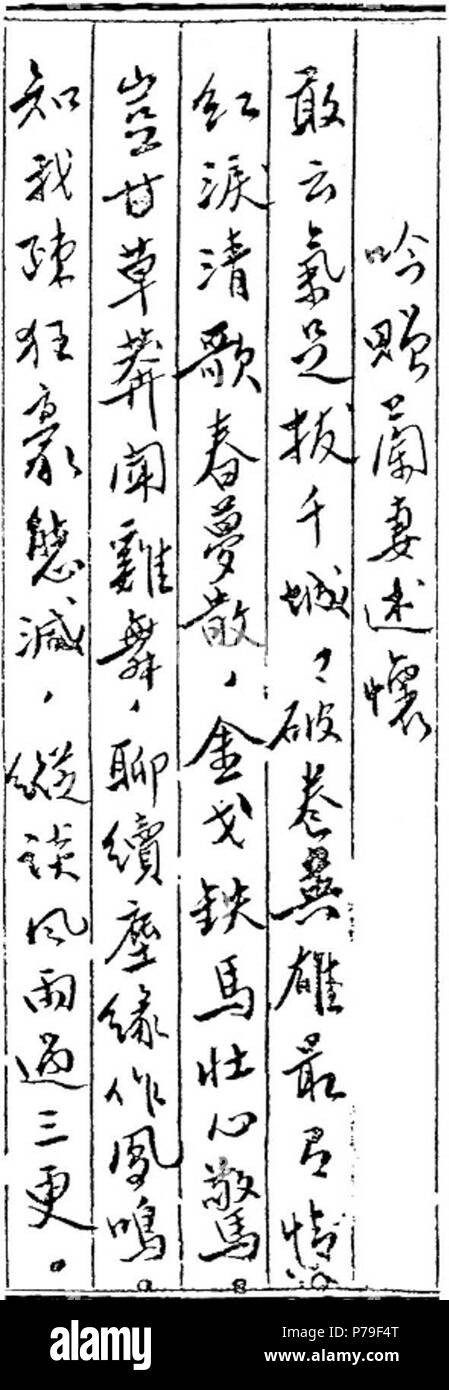 吟贈蘭妻述懷
敢云氣足拔千城，破卷羣雄最有情。
紅淚清歌春夢散，金戈鉄馬壯心驚。
豈甘草莽聞雞舞，聊續塵緣作鳳鳴。
知我疎狂豪態減，縱談風雨過三更。
alamy
Image ID: P79F4T
www.alamy.com